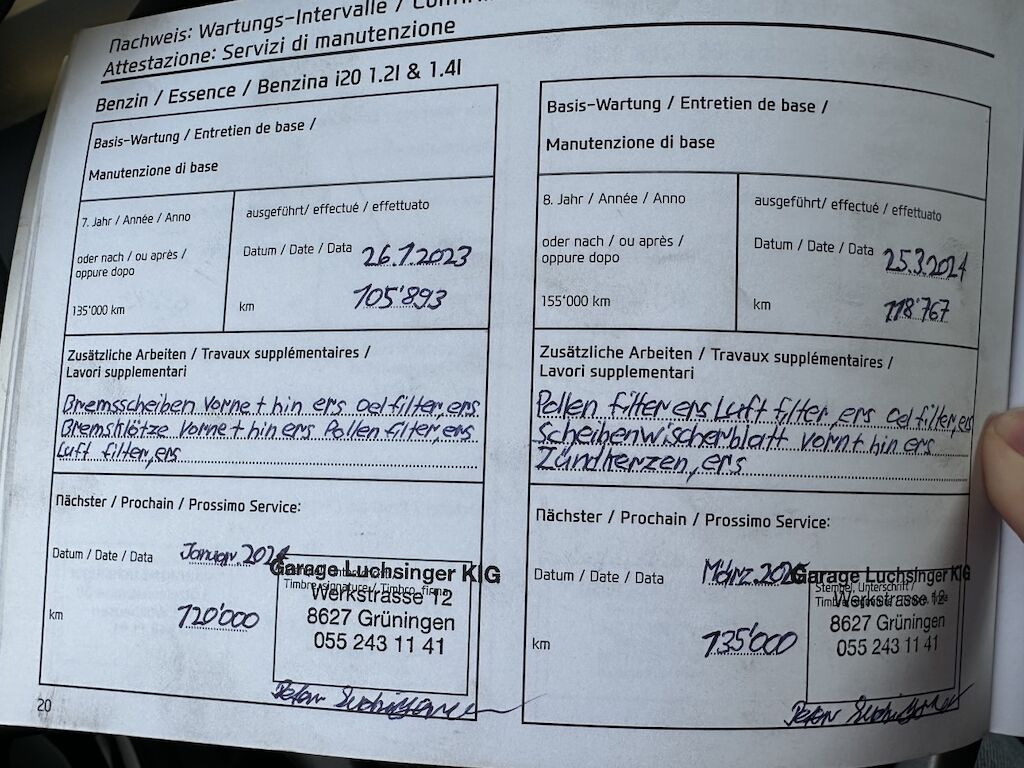 Nachweis: Wartungs-Intervalle /
Attestazione: Servizi di manutenzione
Benzin / Essence / Benzina i20 1.2l & 1.4l
Basis-Wartung / Entretien de base /
Manutenzione di base
7. Jahr / Année / Anno
oder nach / ou après /
oppure dopo
135'000 km
ausgeführt/ effectué / effettuato
Datum / Date / Data 26.7.2023
km 105'893
Zusätzliche Arbeiten / Travaux supplémentaires /
Lavori supplementari
Bremsscheiben vorne + hin ers Oelfilter, ers
Bremsklötze vorne + hin ers Pollen filter, ers
Luft filter, ers
Nächster / Prochain / Prossimo Service:
Datum / Date / Data Januar. 2024
km 120'000
Garage Luchsinger KlG
Timbre, signature / Timbro, firma
Werkstrasse 12
8627 Grüningen
055 243 11 41
20
Basis-Wartung / Entretien de base /
Manutenzione di base
8. Jahr / Année / Anno
oder nach / ou après /
oppure dopo
155'000 km
ausgeführt/ effectué / effettuato
Datum / Date / Data 25.3.2024
km 118'767
Zusätzliche Arbeiten / Travaux supplémentaires /
Lavori supplementari
Pollen filter ers Luft filter, ers Oelfilter, ers
Scheibenwischerblatt vorn + hin ers
Zündkerzen, ers
Nächster / Prochain / Prossimo Service:
Datum / Date / Data März.
km 135'000
Garage Luchsinger KlG
Stempel, Unterschrift /
Werkstrasse 12
8627 Grüningen
055 243 11 41